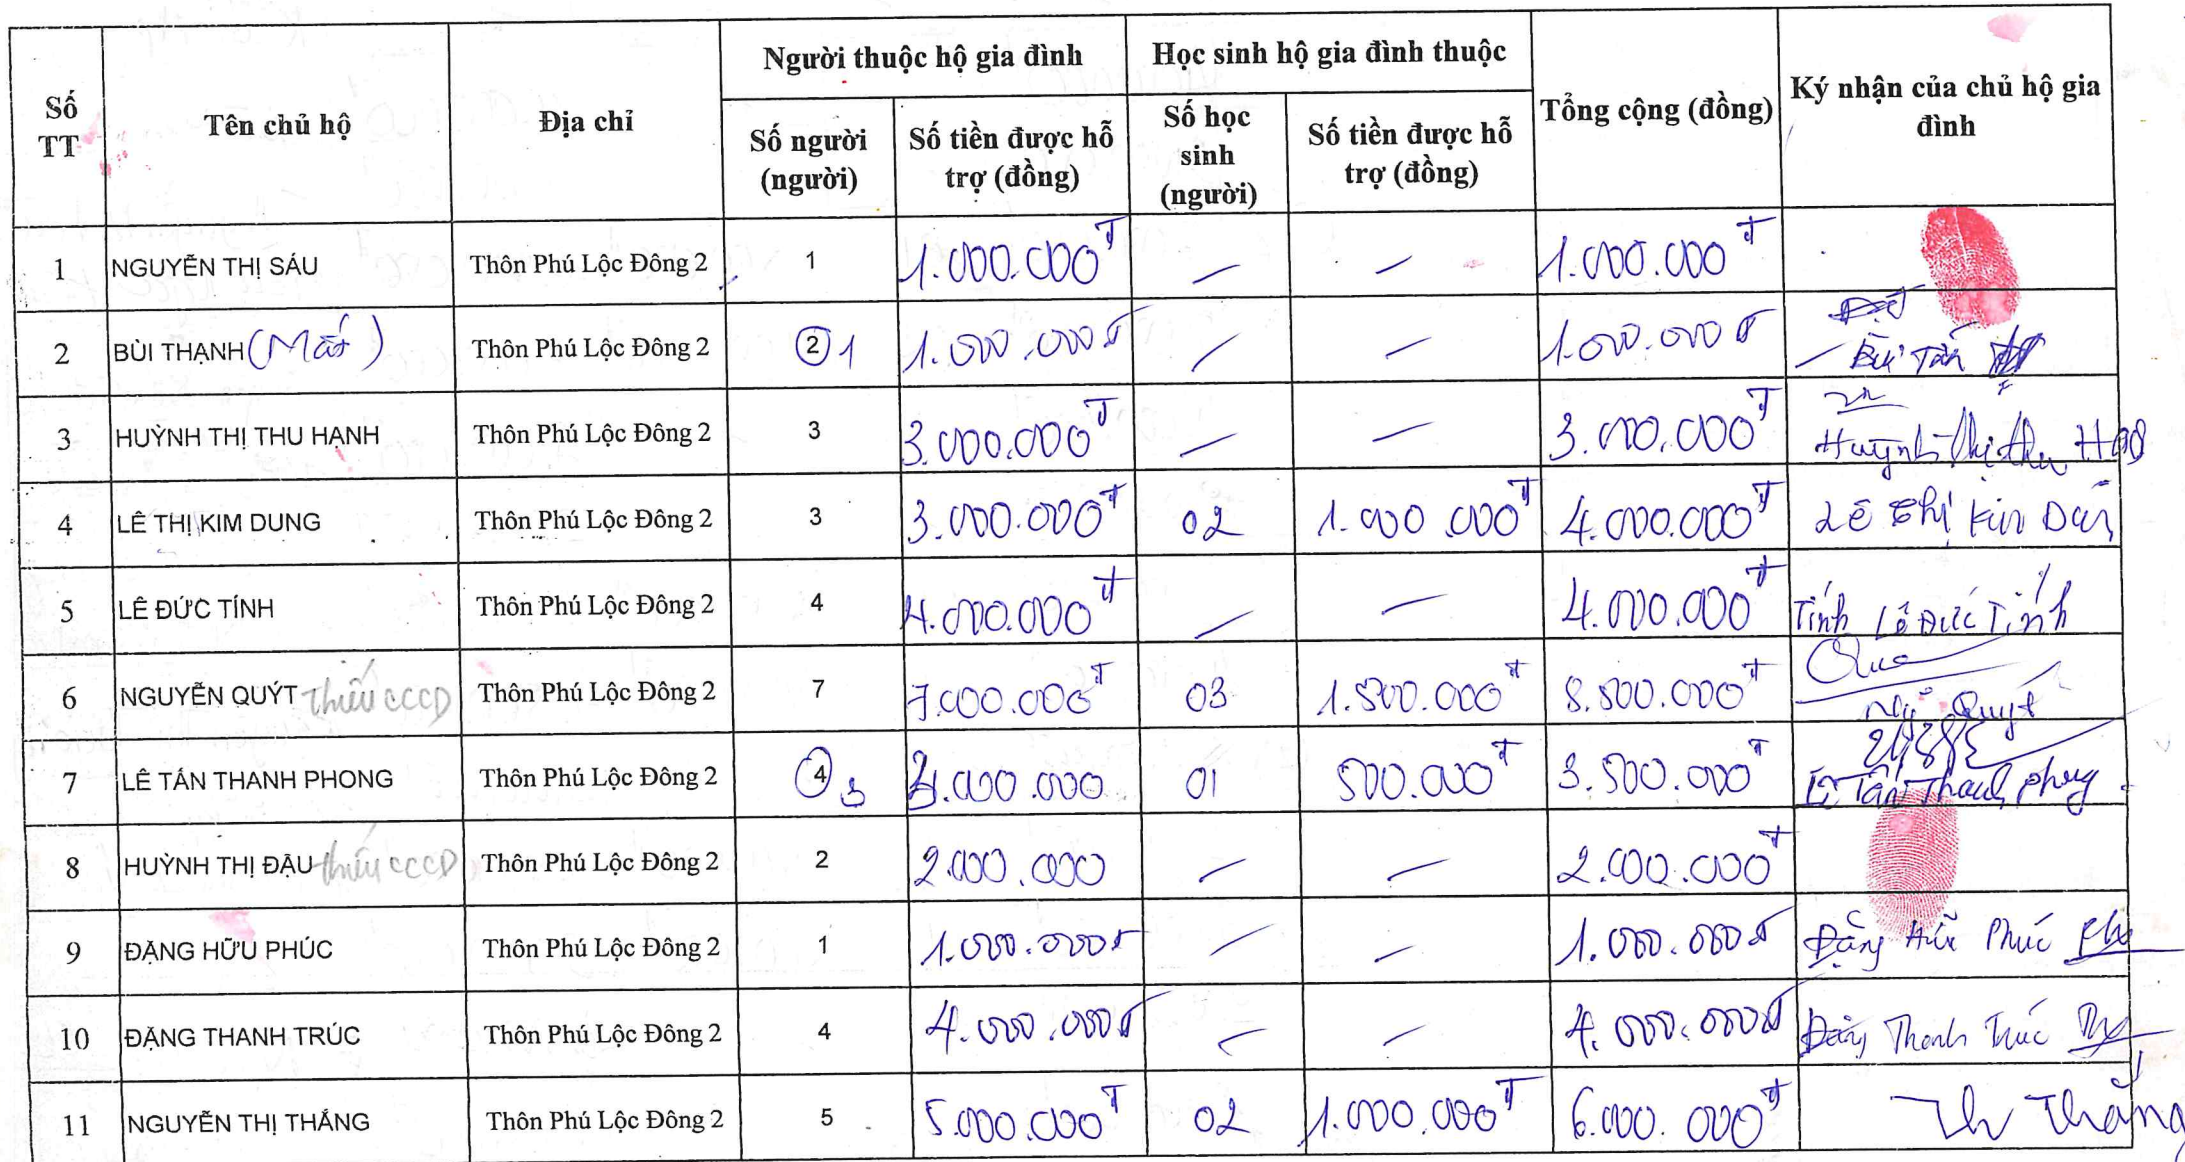 Số TT | Tên chủ hộ | Địa chỉ | Người thuộc hộ gia đình | Học sinh hộ gia đình thuộc | Tổng cộng (đồng) | Ký nhận của chủ hộ gia đình
Số người (người) | Số tiền được hỗ trợ (đồng) | Số học sinh (người) | Số tiền được hỗ trợ (đồng)
1 | NGUYỄN THỊ SÁU | Thôn Phú Lộc Đông 2 | 1 | 1.000.000đ | – | – | 1.000.000đ
2 | BÙI THẠNH (Mất) | Thôn Phú Lộc Đông 2 | 2 1 | 1.000.000đ | – | – | 1.000.000đ | Bùi Tấn
3 | HUỲNH THỊ THU HẠNH | Thôn Phú Lộc Đông 2 | 3 | 3.000.000đ | – | – | 3.000.000đ | Huỳnh Thị Thu
4 | LÊ THỊ KIM DUNG | Thôn Phú Lộc Đông 2 | 3 | 3.000.000đ | 02 | 1.000.000đ | 4.000.000đ | Lê Thị Kim
5 | LÊ ĐỨC TÍNH | Thôn Phú Lộc Đông 2 | 4 | 4.000.000đ | – | – | 4.000.000đ | Tính Lê Đức Tính
6 | NGUYỄN QUÝT thiếu CCCD | Thôn Phú Lộc Đông 2 | 7 | 7.000.000đ | 03 | 1.500.000đ | 8.500.000đ | Quýt
7 | LÊ TẤN THANH PHONG | Thôn Phú Lộc Đông 2 | 4 3 | 3.000.000 | 01 | 500.000đ | 3.500.000đ | Lê Tấn Thanh Phong
8 | HUỲNH THỊ ĐẬU thiếu CCCD | Thôn Phú Lộc Đông 2 | 2 | 2.000.000 | – | – | 2.000.000đ
9 | ĐẶNG HỮU PHÚC | Thôn Phú Lộc Đông 2 | 1 | 1.000.000đ | – | – | 1.000.000đ | Đặng Hữu Phúc
10 | ĐẶNG THANH TRÚC | Thôn Phú Lộc Đông 2 | 4 | 4.000.000đ | – | – | 4.000.000đ | Đặng Thanh Trúc
11 | NGUYỄN THỊ THẮNG | Thôn Phú Lộc Đông 2 | 5 | 5.000.000đ | 02 | 1.000.000đ | 6.000.000đ | Thắng